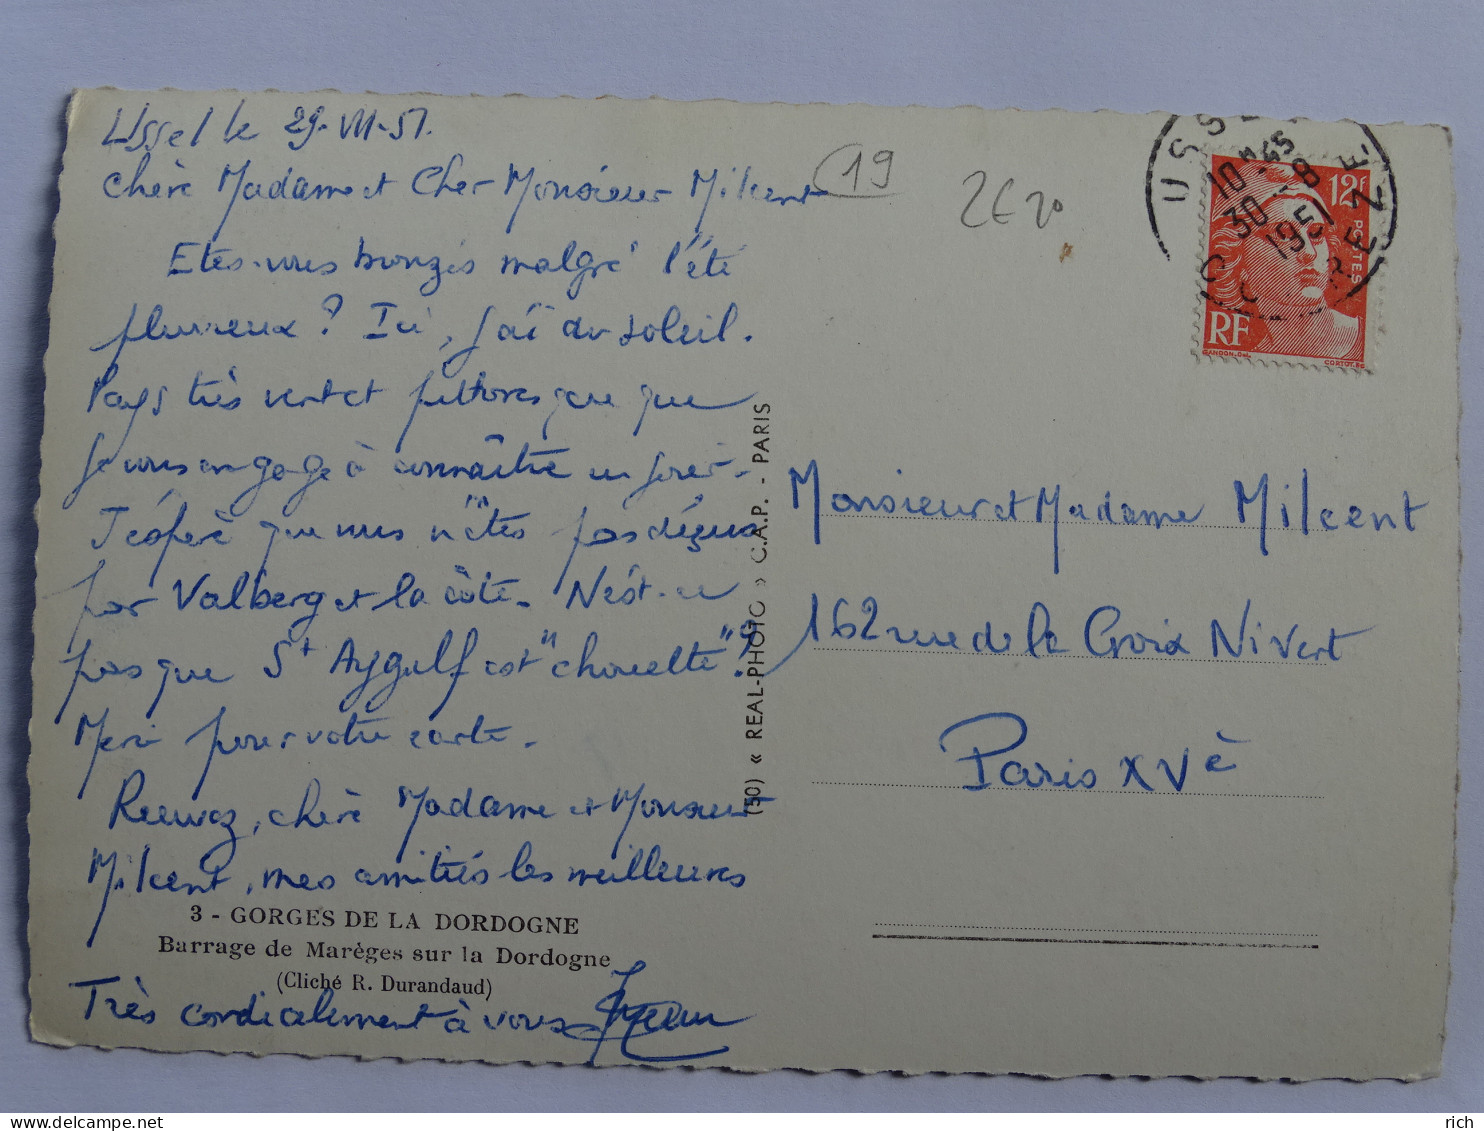 Ussel le 29-VIII-51.
Chère Madame et Cher Monsieur Milcent
Etes-vous bronzés malgré l'été
pluvieux ? Ici, j'ai du soleil.
Pays très vert et pittoresque que
je vous engage à connaître un jour.
J'espère que vous n'êtes pas déçus
par Valberg et la côte. N'est-ce
pas que St Aygulf est "chouette" ?
Merci pour votre carte.
Recevez, chère Madame et Monsieur
Milcent, mes amitiés les meilleures
3 - GORGES DE LA DORDOGNE
Barrage de Marèges sur la Dordogne
(Cliché R. Durandaud)
Très cordialement à vous
(50) « REAL-PHOTO » C.A.P. - PARIS
19
2€20
USSEL
10H45
30-8
1951
CORREZE
12F
POSTES
RF
GANDON.DEL.
CORTOT.SC
Monsieur et Madame Milcent
162 rue de la Croix Nivert
Paris XVè
rich